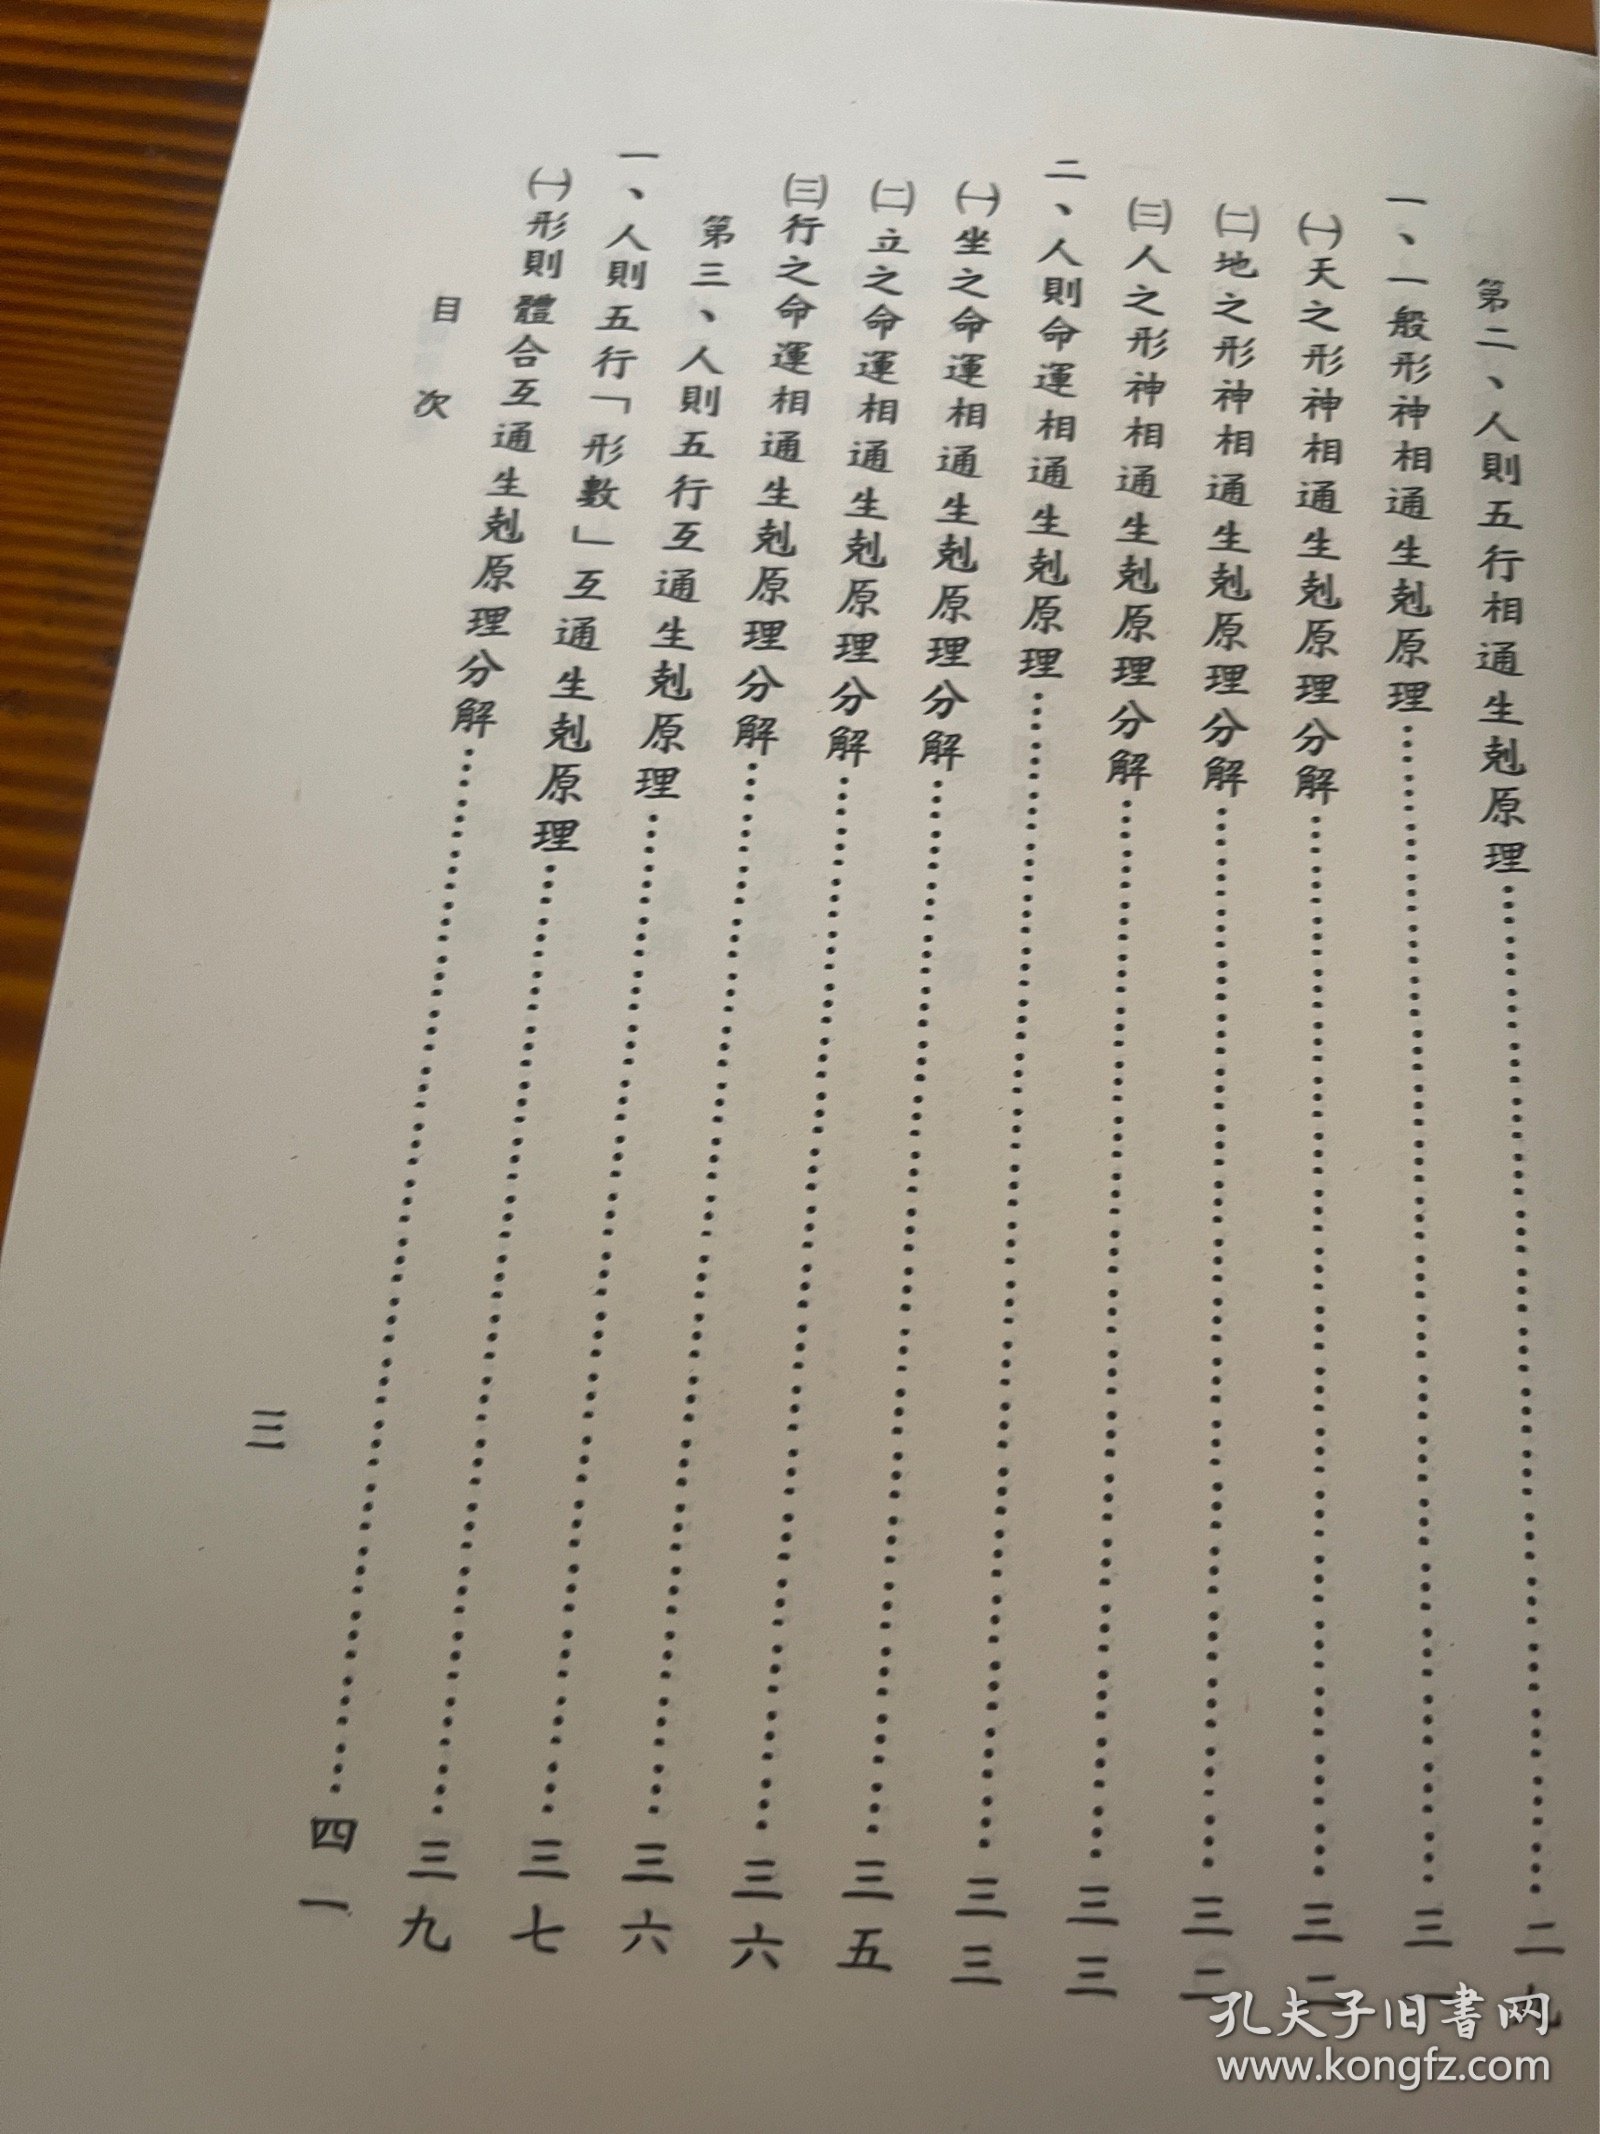 第二、人則五行相通生剋原理……二九
一、一般形神相通生剋原理……三
㈠天之形神相通生剋原理分解……三二
㈡地之形神相通生剋原理分解……三二
㈢人之形神相通生剋原理分解……三三
二、人則命運相通生剋原理……三三
㈠坐之命運相通生剋原理分解……三五
㈡立之命運相通生剋原理分解……三六
㈢行之命運相通生剋原理分解……三六
第三、人則五行互通生剋原理……三七
一、人則五行「形數」互通生剋原理……三九
㈠形則體合互通生剋原理分解……四一
目次
三
孔夫子旧書网
www.kongfz.com